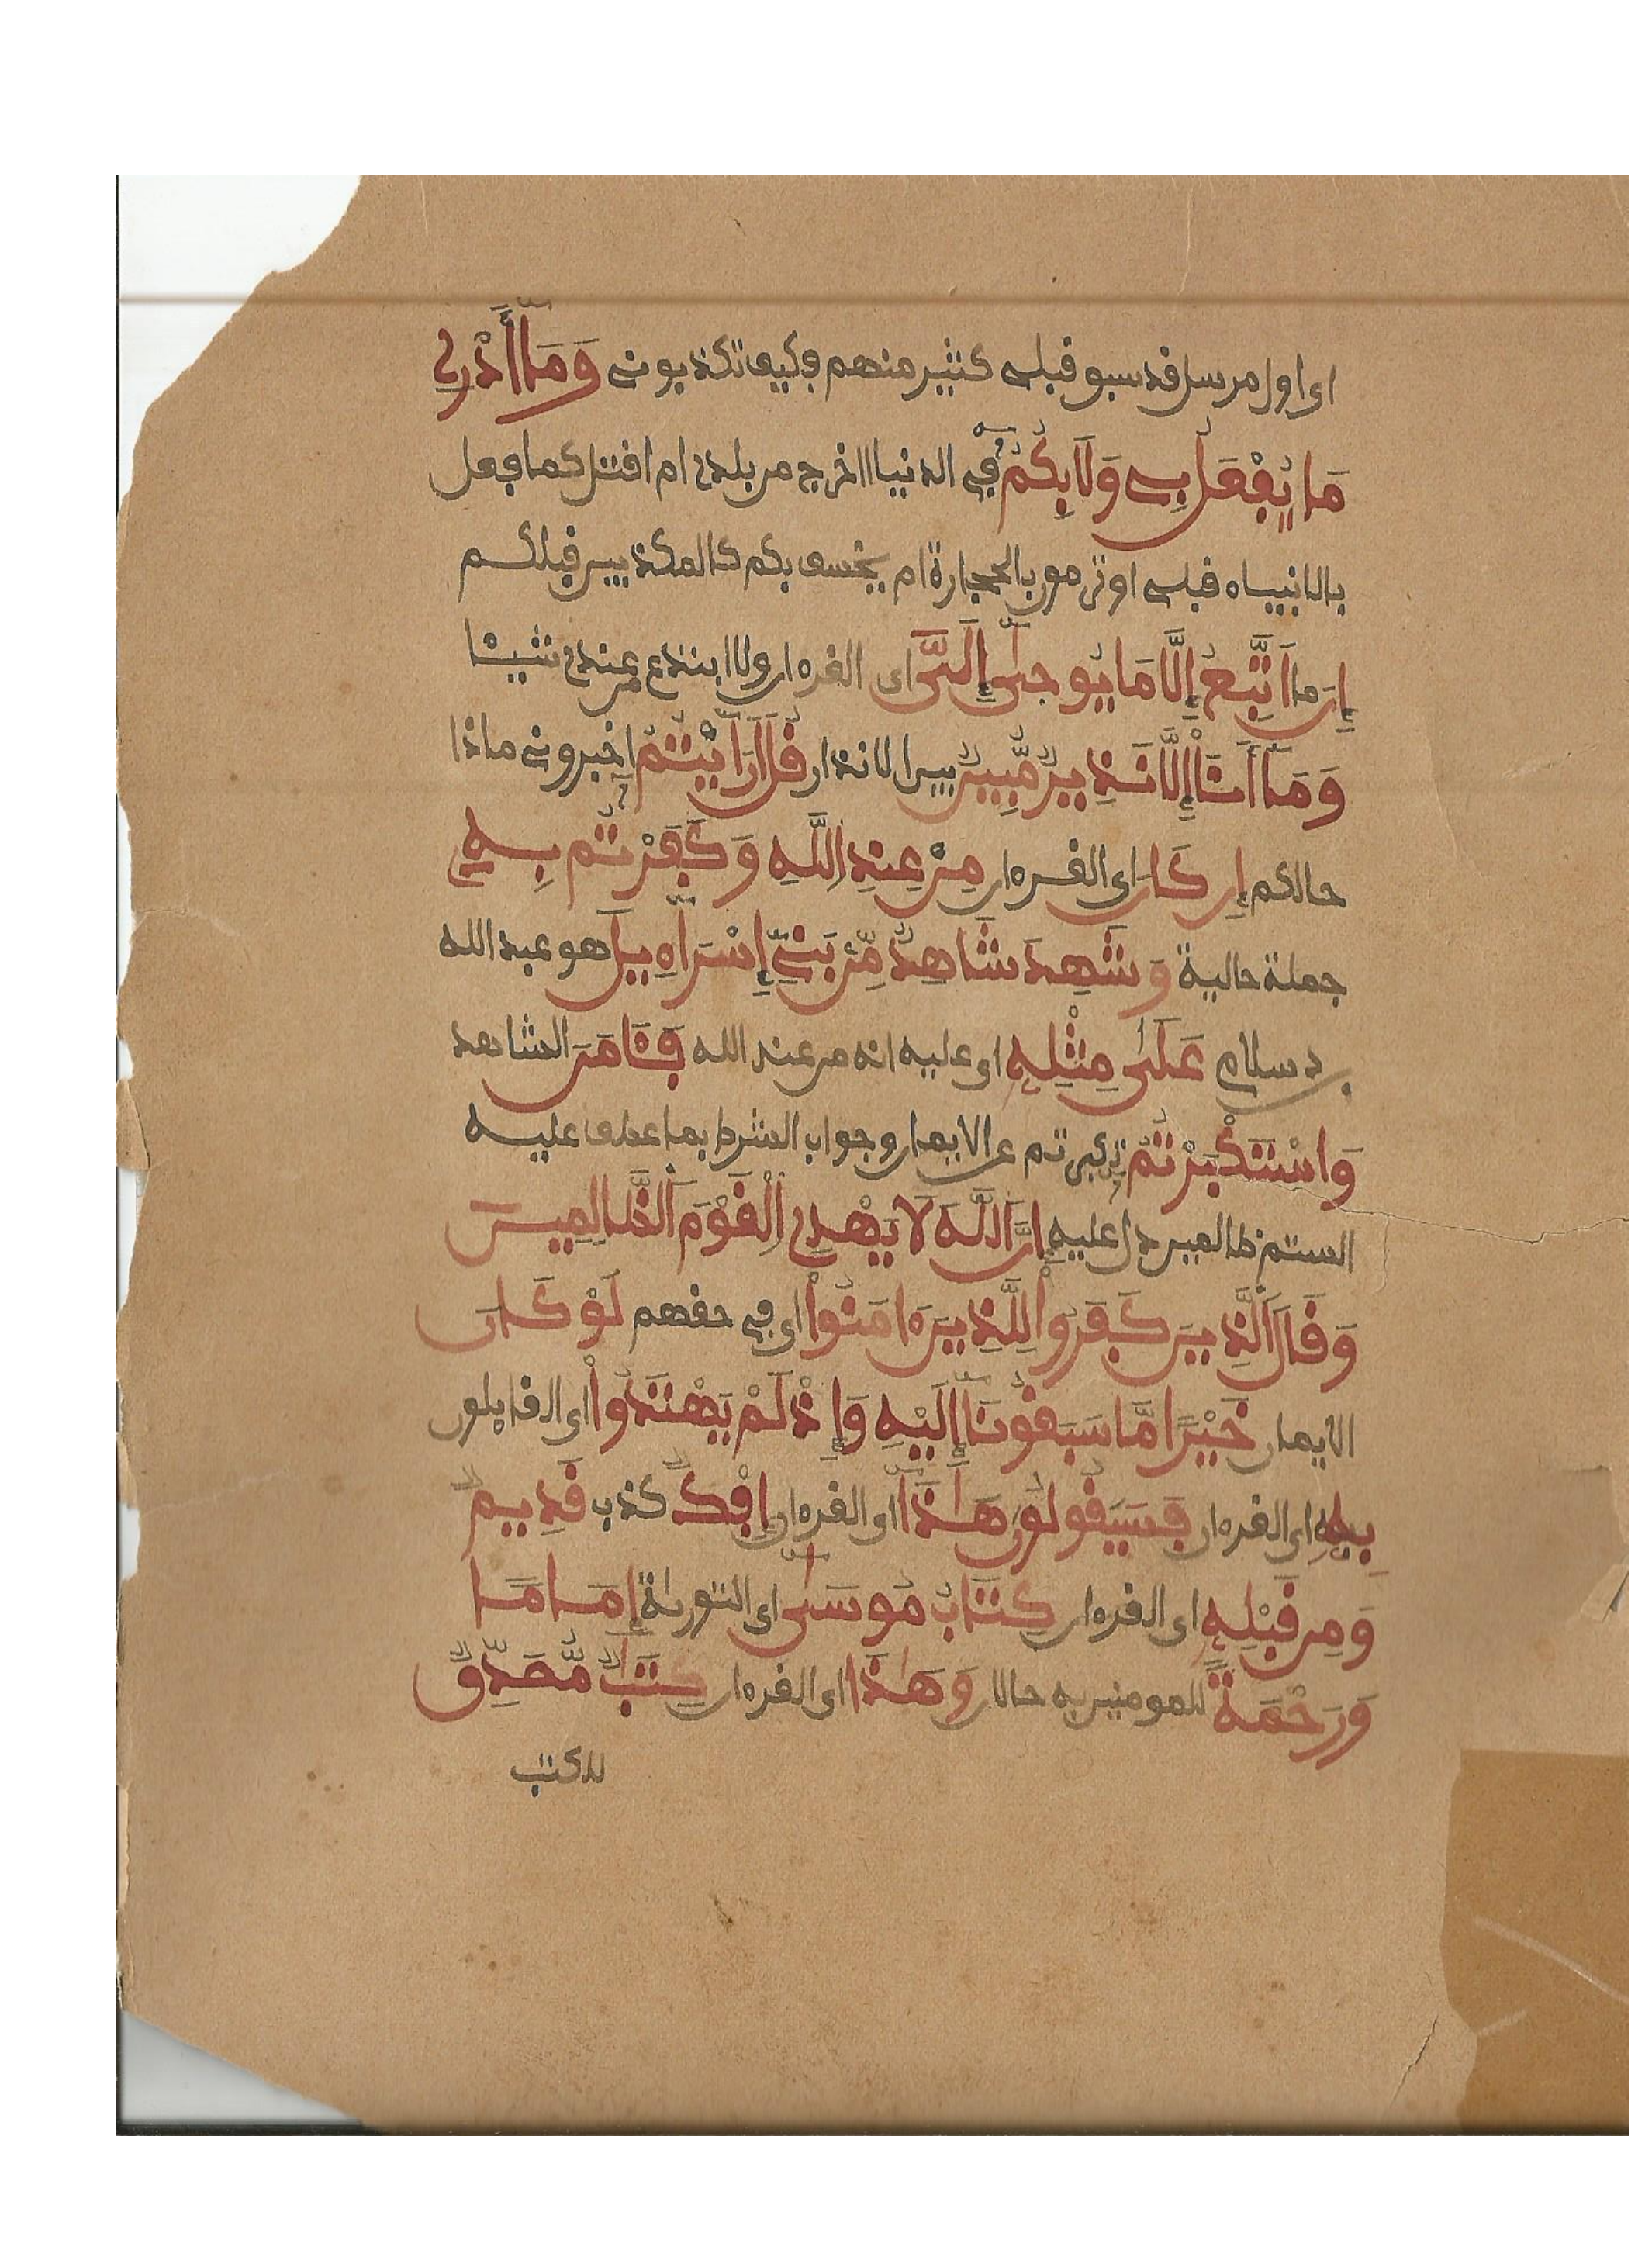 اى اول مرسل قد سبق قبلى كثير منهم فكيف تكذبونى وَمَآ أَدْرِى
مَا يُفْعَلُ بِى وَلَا بِكُمْ فى الدنيا اخرج من بلدى ام اقتل كما فعل
بالانبياء قبلى او ترمون بالحجارة ام يخسف بكم كالمكذبين قبلكم
إِن ما اَتَّبِعُ إِلَّا مَا يُوحَىٰ إِلَىَّ اى القرءان ولا ابتدع من عندى شيئا
وَمَآ أَنَا۠ إِلَّا نَذِيرٌ مُّبِينٌ بين الانذار قُلْ أَرَٰٓيْتُمْ اخبرونى ماذا
حالكم إِن كَانَ اى القرءان مِنْ عِندِ اللَّهِ وَكَفَرْتُم بِهِ
جملة حالية وَشَهِدَ شَاهِدٌ مِّنۢ بَنِىٓ إِسْرَآءِيلَ هو عبد الله
بن سلام عَلَىٰ مِثْلِهِ اى عليه انه من عند الله فَـَٔامَنَ الشاهد
وَاسْتَكْبَرْتُمْ تكبرتم عن الايمان وجواب الشرط بما عطف عليه
الستم ظالمين دل عليه إِنَّ اَللَّهَ لَا يَهْدِى اِلْقَوْمَ اَلظَّالِمِينَ
وَقَالَ اَلَّذِينَ كَفَرُواْ لِلَّذِينَ ءَامَنُواْ اى فى حقهم لَوْ كَانَ
الايمان خَيْرًا مَّا سَبَقُونَآ إِلَيْهِ وَإِذْ لَمْ يَهْتَدُواْ اى القايلون
بِهِ اى القرءان فَسَيَقُولُونَ هَٰذَآ اى القرءان إِفْكٌ كذب قَدِيمٌ
وَمِن قَبْلِهِ اى القرءان كِتَابُ مُوسَىٰٓ اى التورىٰة إِمَامًا
وَرَحْمَةً للمومنين به حالان وَهَٰذَا اى القرءان كِتَٰبٌ مُّصَدِّقٌ
للكتب